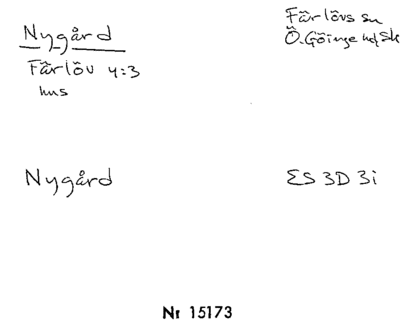 Nygård
Färlövs sn
Ö. Göinge hd, Sk
Färlöv 4:3
hus
Nygård
ES 3D 3i
Nr 15173